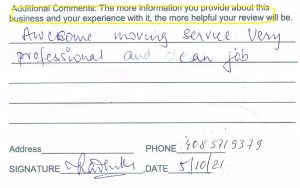 Additional Comments: The more information you provide about this
business and your experience with it, the more helpful your review will be.
Awesome moving service. Very
professional and clean job
Address PHONE 4085719379
SIGNATURE DATE 5/10/21